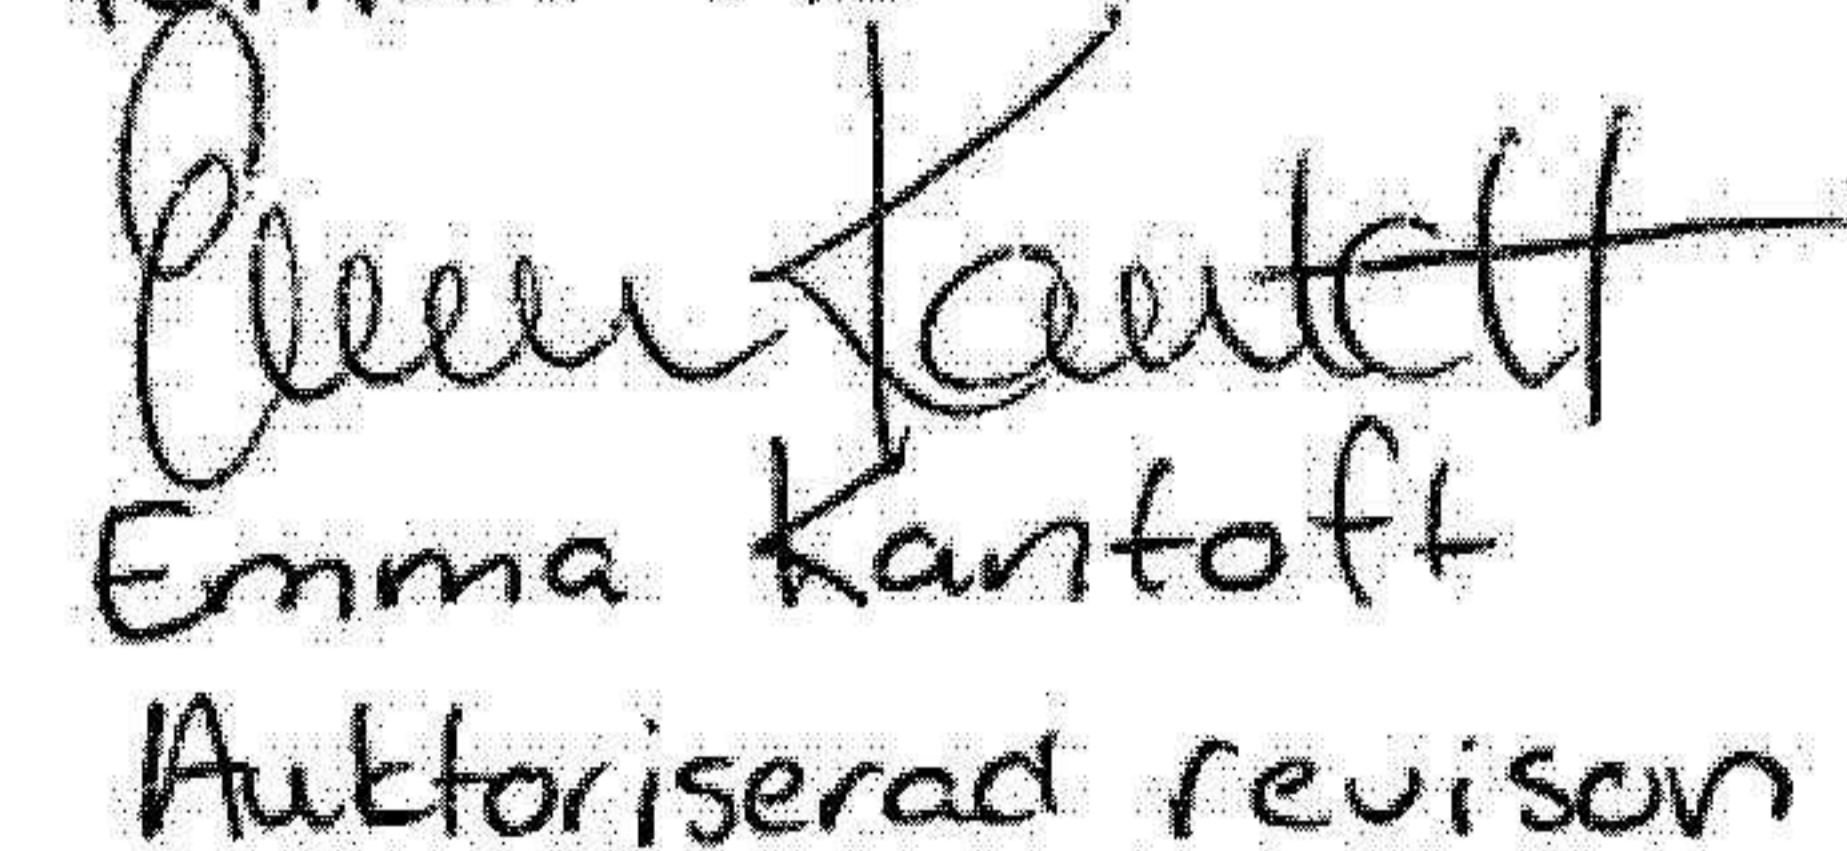 Emma Kantoft
Emma Kantoft
Auktoriserad revisor